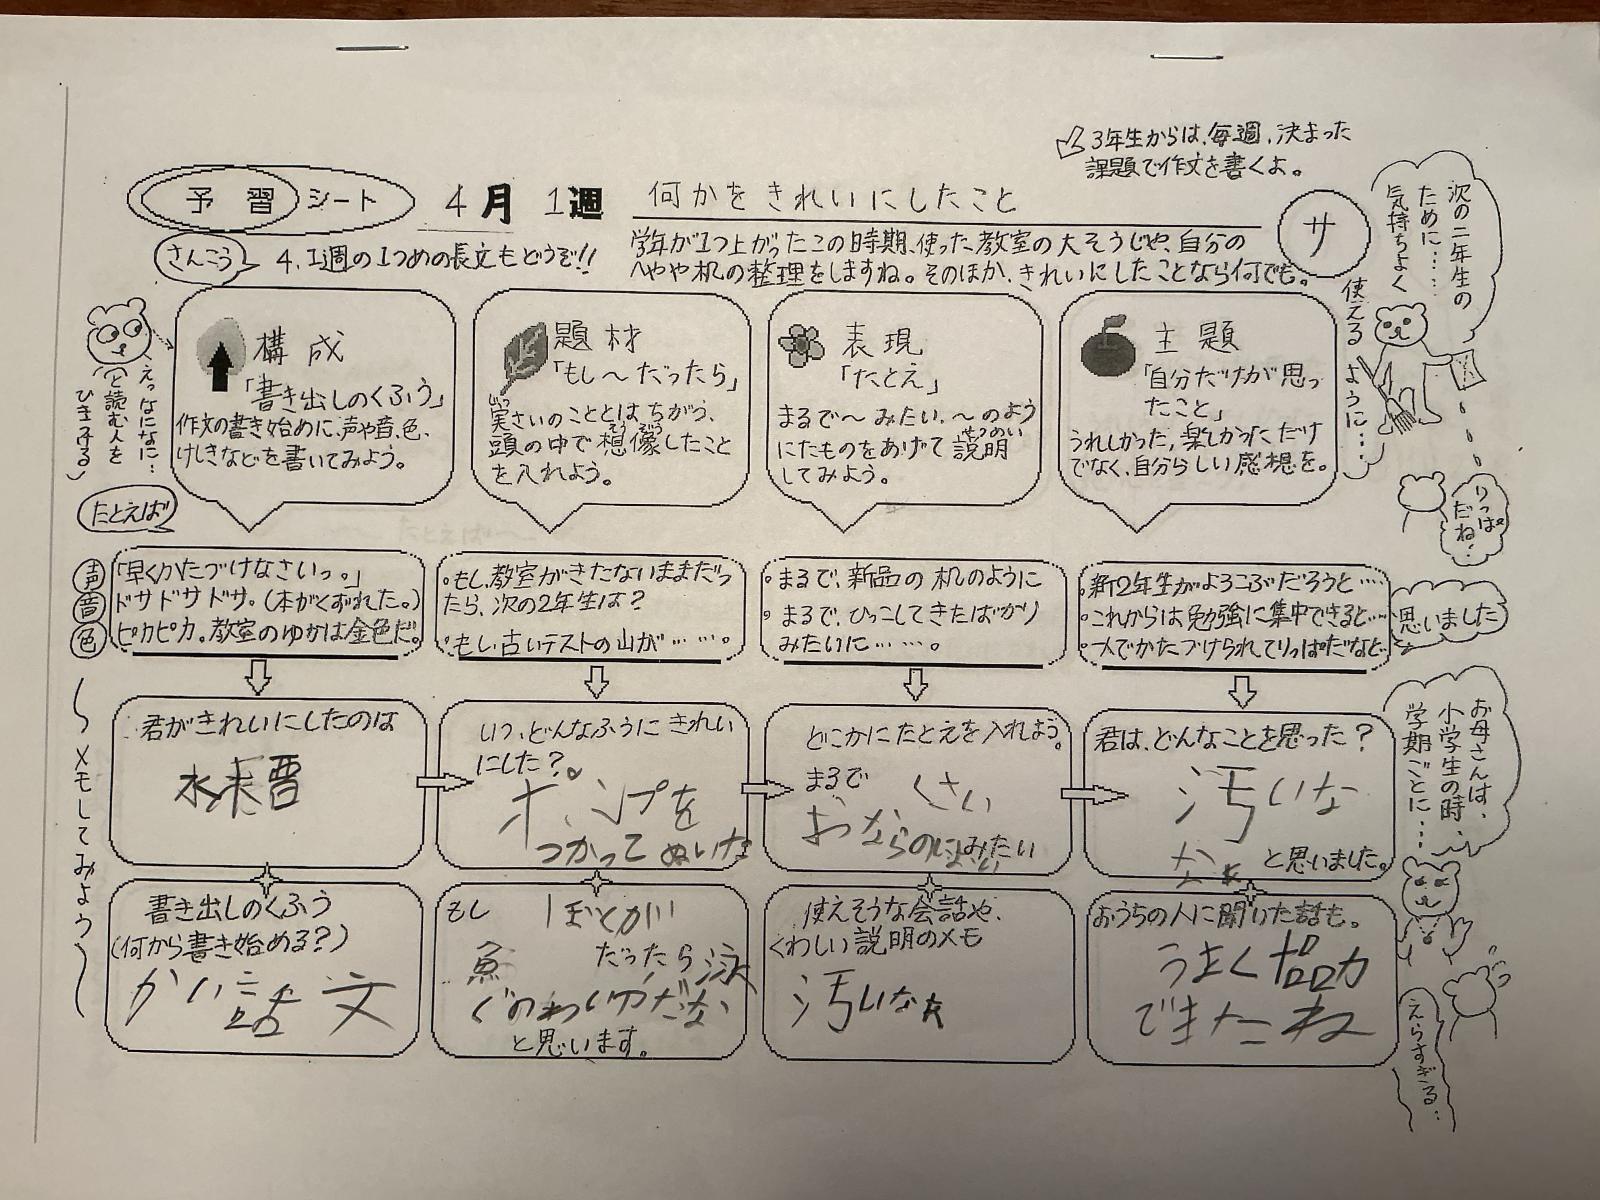 3年生からは、毎週、決まった
課題で作文を書くよ。
予習シート 4月 1週 何かをきれいにしたこと
サ
さんこう 4.1週の1つめの長文もどうぞ!!
学年が1つ上がったこの時期、使った教室の大そうじや、自分の
へやや机の整理をしますね。そのほか、きれいにしたことなら何でも。
次の二年生の
ために……
気持ちよく
使えるように……
りっぱ
だね!
えっなになに…
と読む人を
ひきつける
構成
「書き出しのくふう」
作文の書き始めに、声や音、色、
けしきなどを書いてみよう。
題材
「もし〜だったら」
実さいのこととはちがう、
頭の中で想像したこと
を入れよう。
表現
「たとえ」
まるで〜みたい、〜のよう
にたものをあげて説明
してみよう。
主題
「自分だけが思っ
たこと」
うれしかった,楽しかっただけ
でなく、自分らしい感想を。
たとえば
声
音
色
「早くかたづけなさいっ。」
ドサドサドサ。(本がくずれた。)
ピカピカ。教室のゆかは金色だ。
・もし、教室がきたないままだっ
たら、次の2年生は?
・もし古いテストの山が……。
・まるで、新品の机のように
・まるで、ひっこしてきたばかり
みたいに……。
・新2年生がよろこぶだろうと…
・これからは勉強に集中できると…
・一人でかたづけられてりっぱだなと…
思いました
〜メモしてみよう〜
君がきれいにしたのは
水
いつ、どんなふうにきれい
にした?
ポンプを
つかってぬいた
どこかにたとえを入れよう。
まるで くさい
おならの みたい
君は、どんなことを思った?
汚いな
なぁ と思いました。
お母さんは、
小学生の時、
学期ごとに…
書き出しのくふう
(何から書き始める?)
かい話文
もし ぼくが
魚 だったら泳
ぐの だな
と思います。
使えそうな会話や、
くわしい説明のメモ
汚いなぁ
おうちの人に聞いた話も。
うまく協力
できたね
えらすぎる…